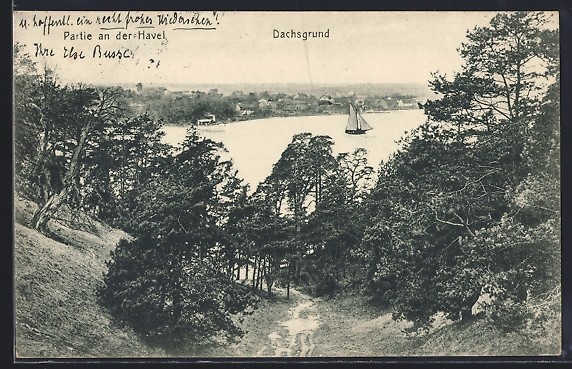 u. hoffentl. ein recht frohes Wiedersehen"!
Partie an der Havel
Dachsgrund
Ihre Else Busse